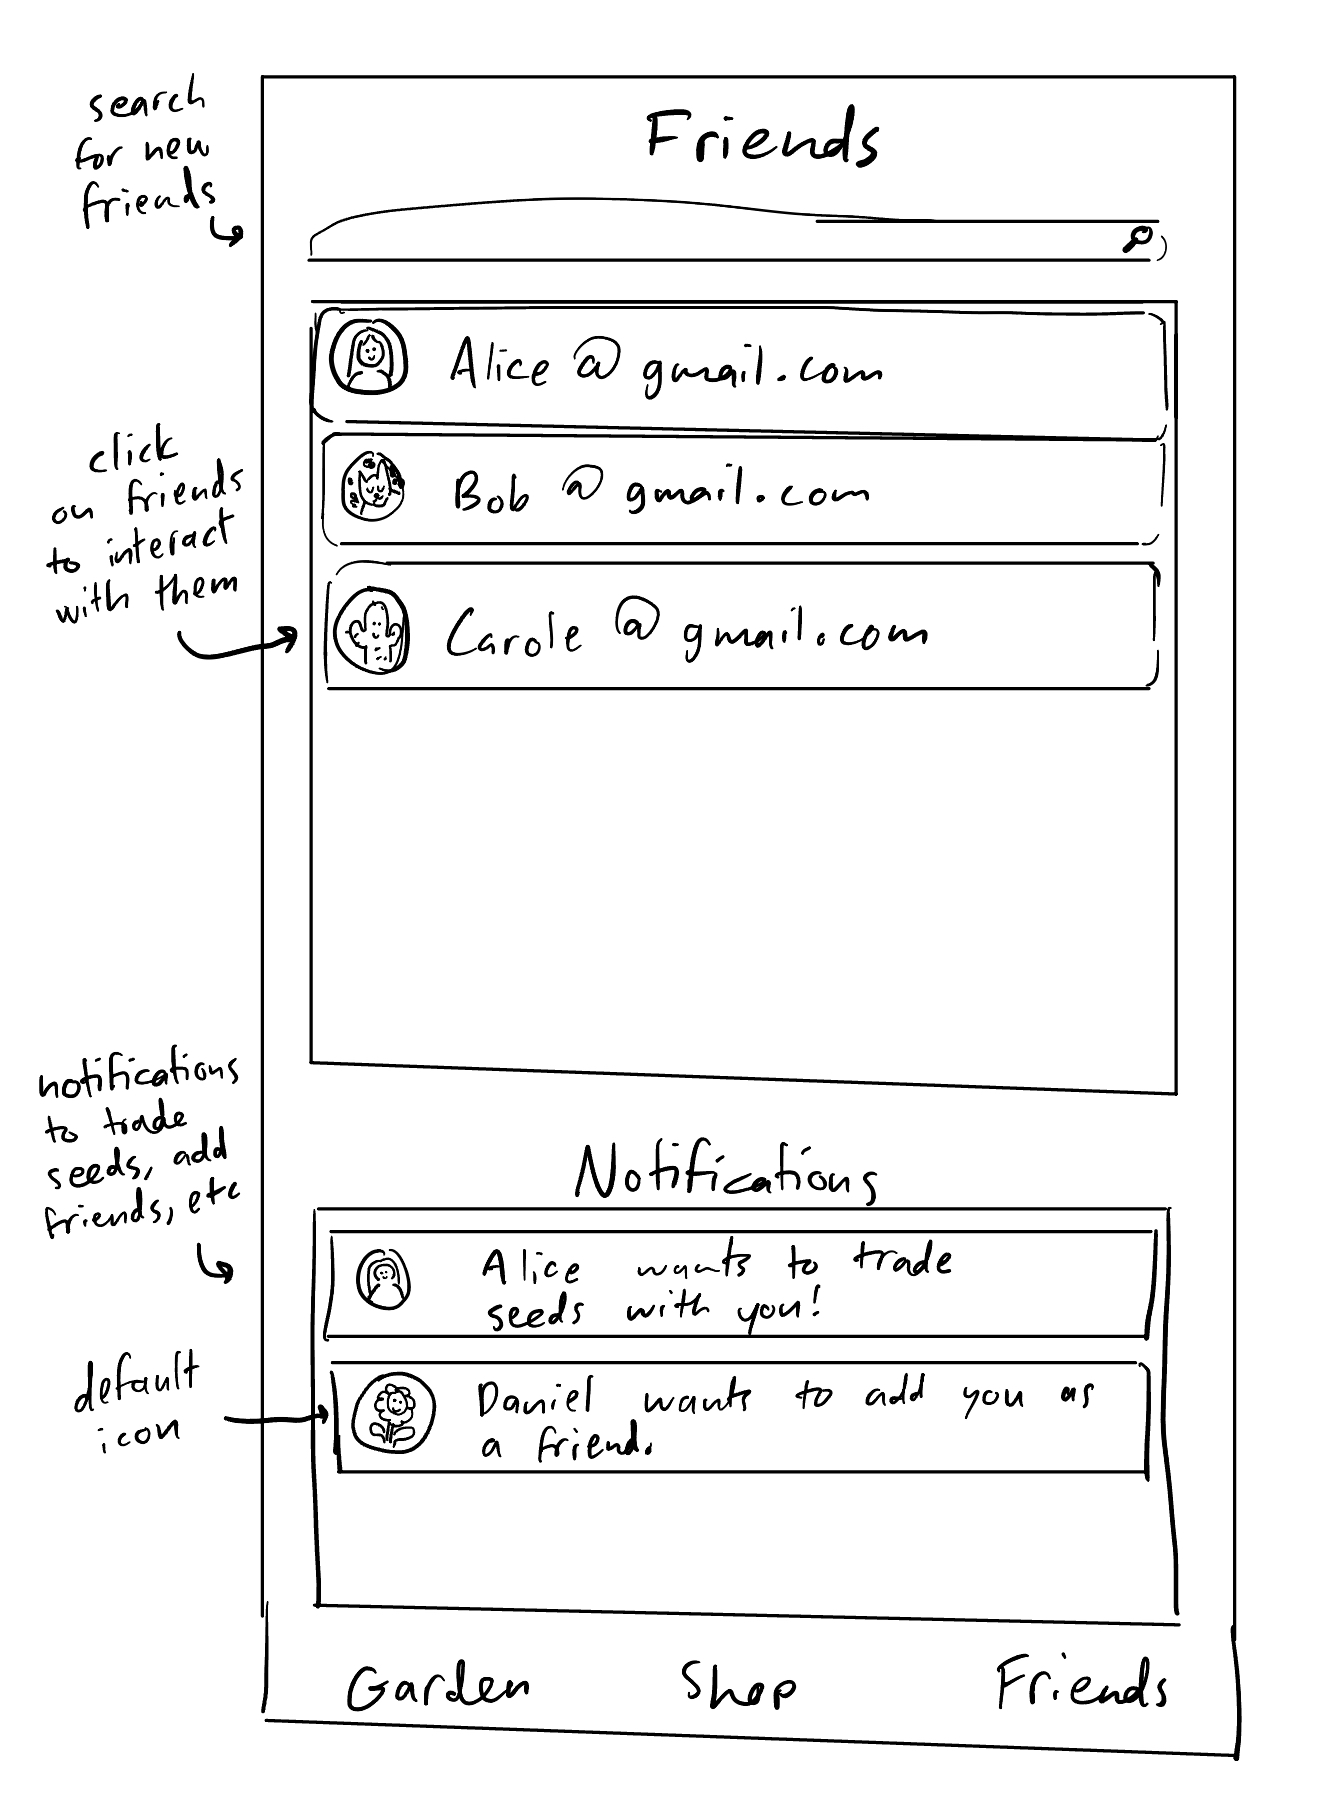 search
for new
friends
Friends
Alice @ gmail.com
Bob @ gmail.com
Carole @ gmail.com
click
on friends
to interact
with them
notifications
to trade
seeds, add
friends, etc
Notifications
Alice wants to trade
seeds with you!
default
icon
Daniel wants to add you as
a friend.
Garden Shop Friends